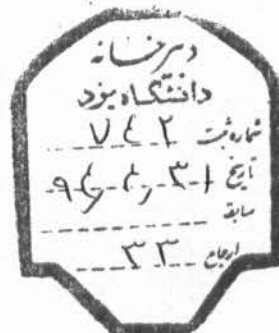 دبیرخانه
دانشگاه یزد
شماره ثبت ۷۴۲
تاریخ ۹۴,۴,۳۱
سابقه
ارجاع ۳۳